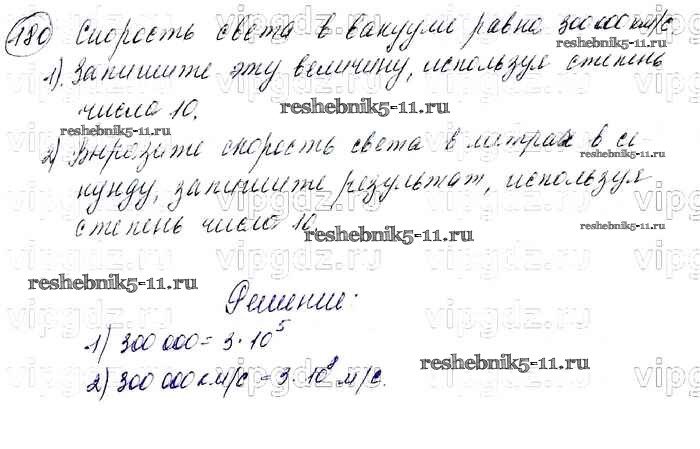 180 Скорость света в вакууме равна 300 000 км/с
1). Запишите эту величину, используя степень
числа 10.
2) Выразите скорость света в метрах в се-
кунду, запишите результат, используя
степень числа 10.
Решение:
1) 300 000 = 3 · 10⁵
2) 300 000 км/с = 3 · 10⁸ м/с.
reshebnik5-11.ru
reshebnik5-11.ru
reshebnik5-11.ru
reshebnik5-11.ru
reshebnik5-11.ru
reshebnik5-11.ru
reshebnik5-11.ru
reshebnik5-11.ru
vipgdz.ru